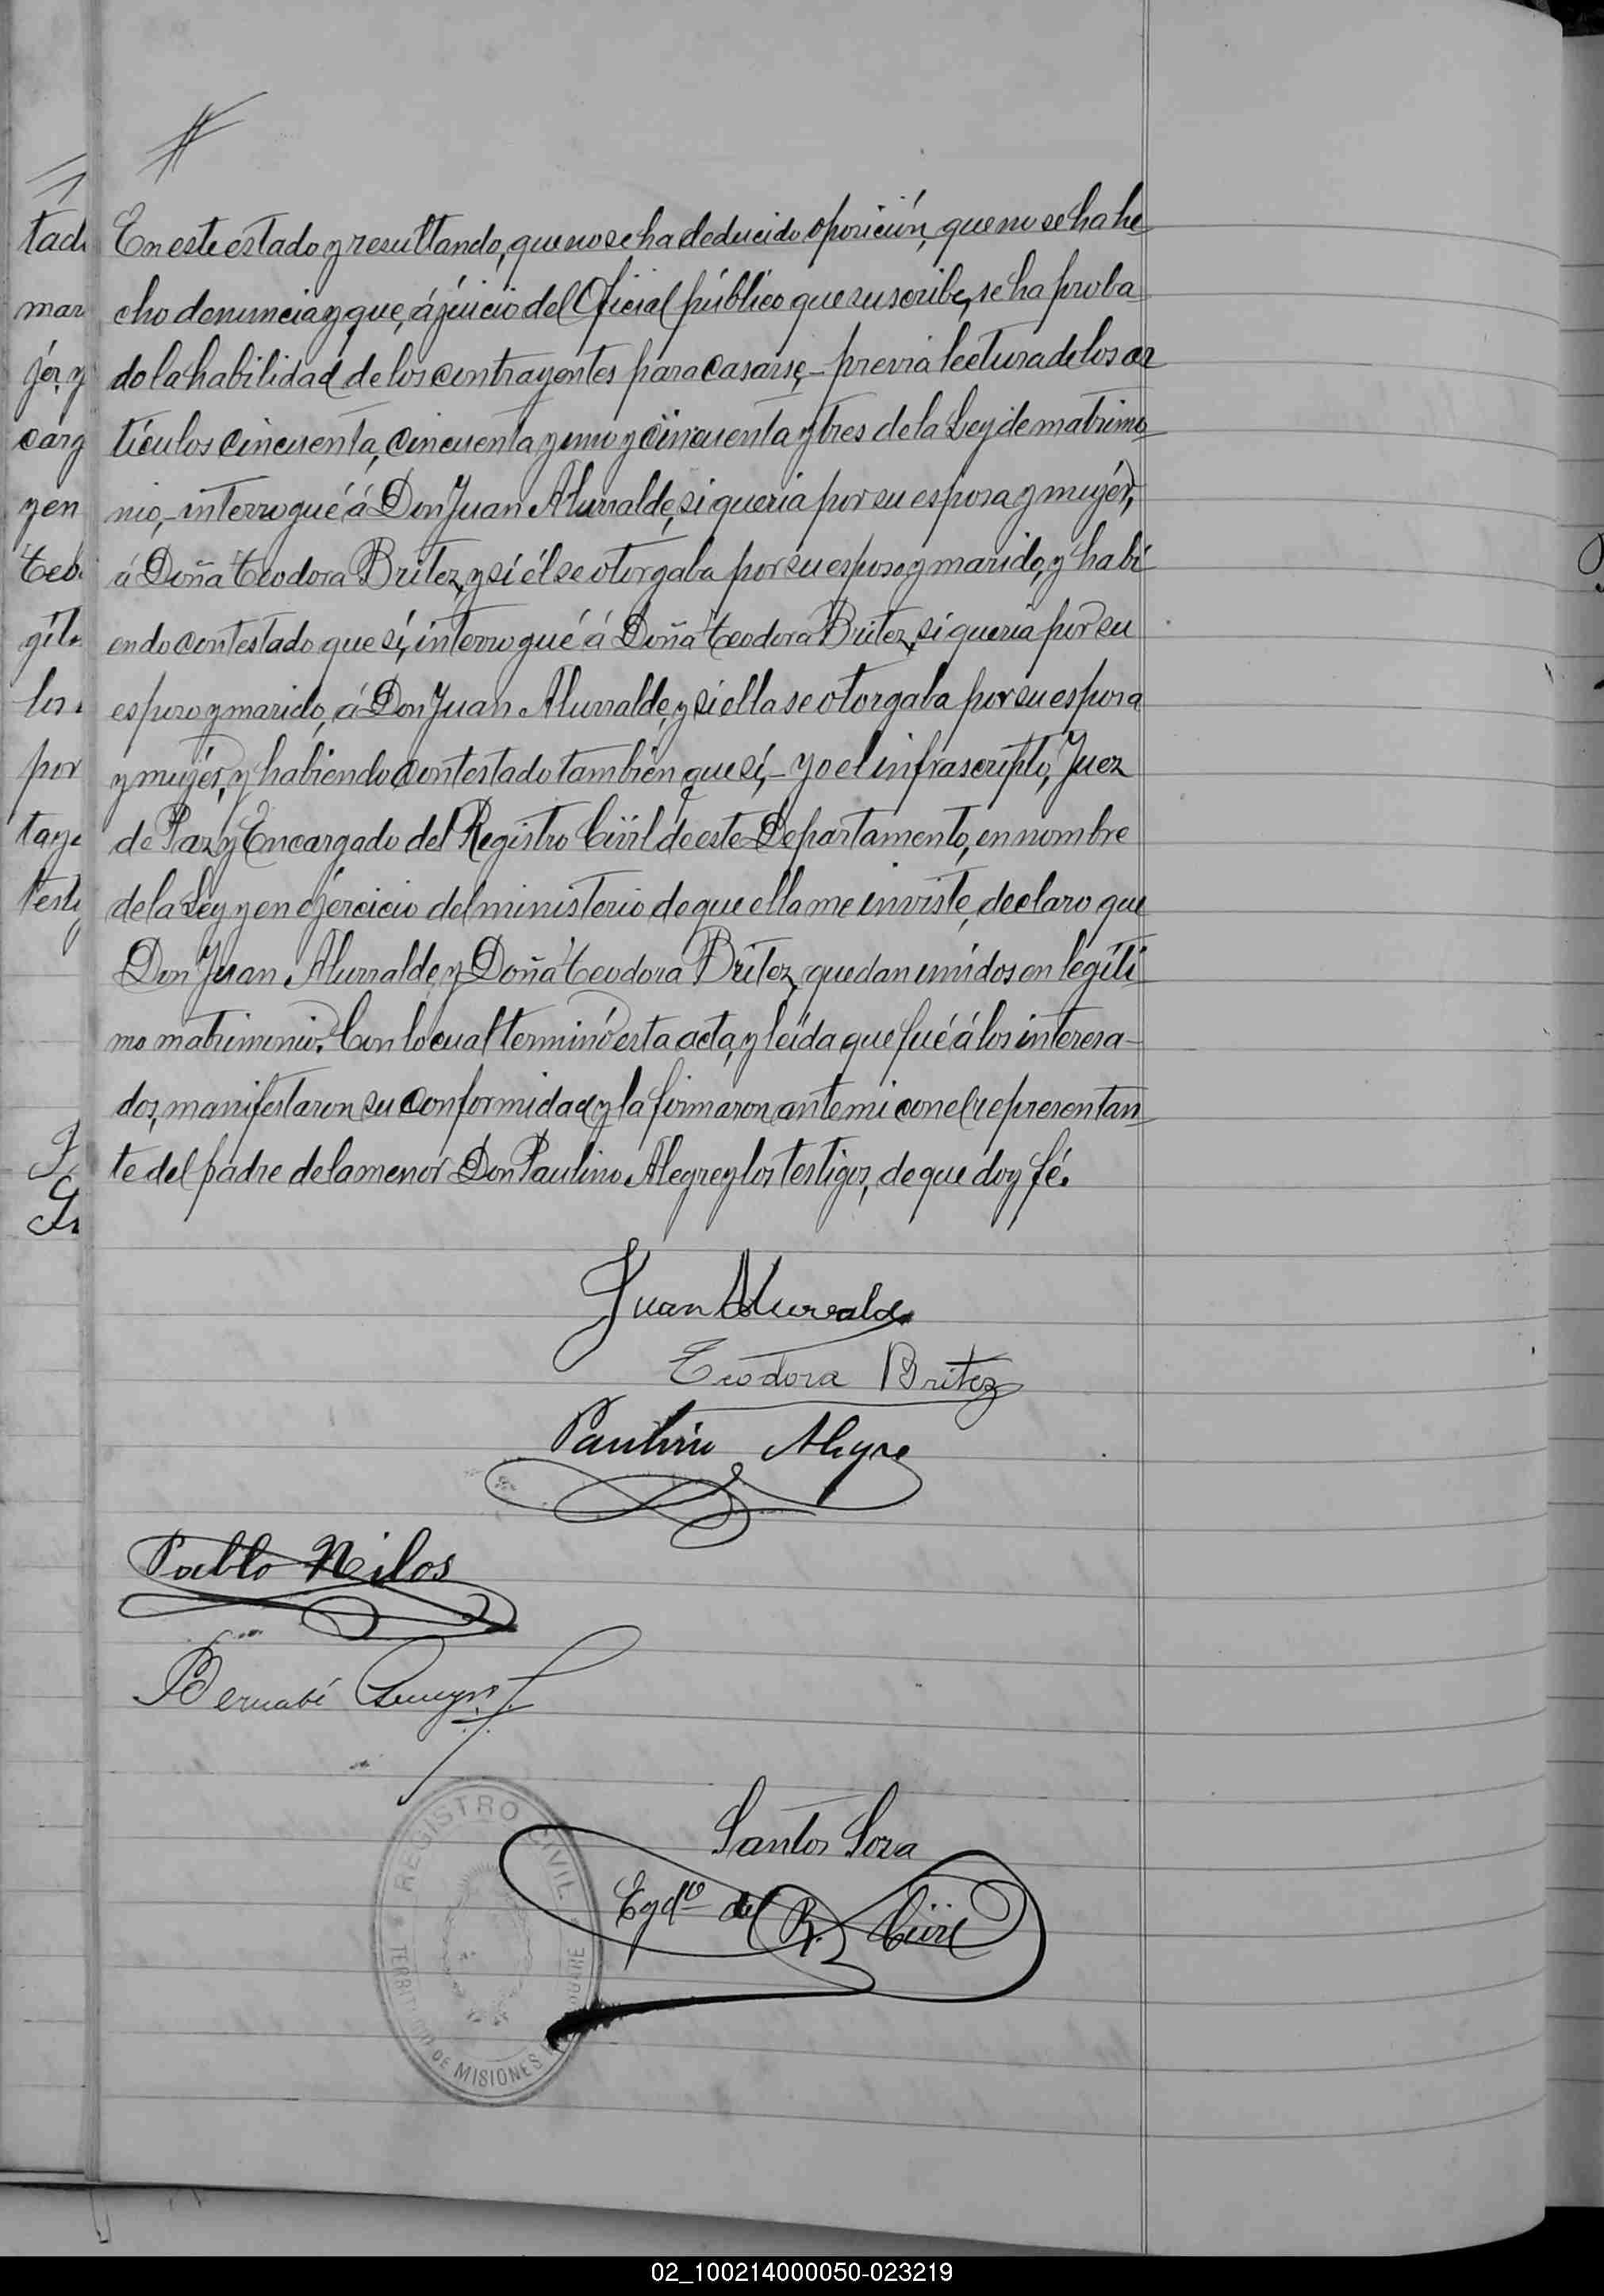 En este estado y resultando, que no se ha deducido oposición, que no se ha he
cho denuncia y que, á juicio del Oficial público que suscribe, se ha proba
do la habilidad de los contrayentes para casarse,- previa lectura de los ar
tículos cincuenta, cincuenta y uno y cincuenta y tres de la Ley de matrimo
nio,- interrogué á Don Juan Alurralde, si queria por su esposa y mujér,
á Doña Teodora Britez, y si él se otorgaba por su esposo y marido, y habi
endo contestado que sí, interrogué á Doña Teodora Britez, si queria por su
esposo y marido, á Don Juan Alurralde, y si ella se otorgaba por su esposa
y mujér, y habiendo contestado también que sí,- yo el infrascripto, Juez
de Paz y Encargado del Registro Civil de este Departamento, en nombre
de la Ley y en ejércicio del ministerio de que ella me inviste, declaro que
Don Juan Alurralde, y Doña Teodora Britez, quedan unidos en legíti
mo matrimonio. Con lo cual terminó esta acta, y leida que fué á los interesa-
dos, manifestaron su conformidad y la firmaron ante mi con el representan
te del padre de la menor Don Paulino Alegre y los testigos, de que doy fé.
Juan Alurralde
Teodora Britez
Paulino Alegre
Pablo Nilos
Bernabé
Santos Sosa
Egdo del R. Civil
REGISTRO CIVIL
TERRITORIO DE MISIONES
tad
mar
jér, y
carg
y en
Teo
los
por
testi
02_100214000050-023219